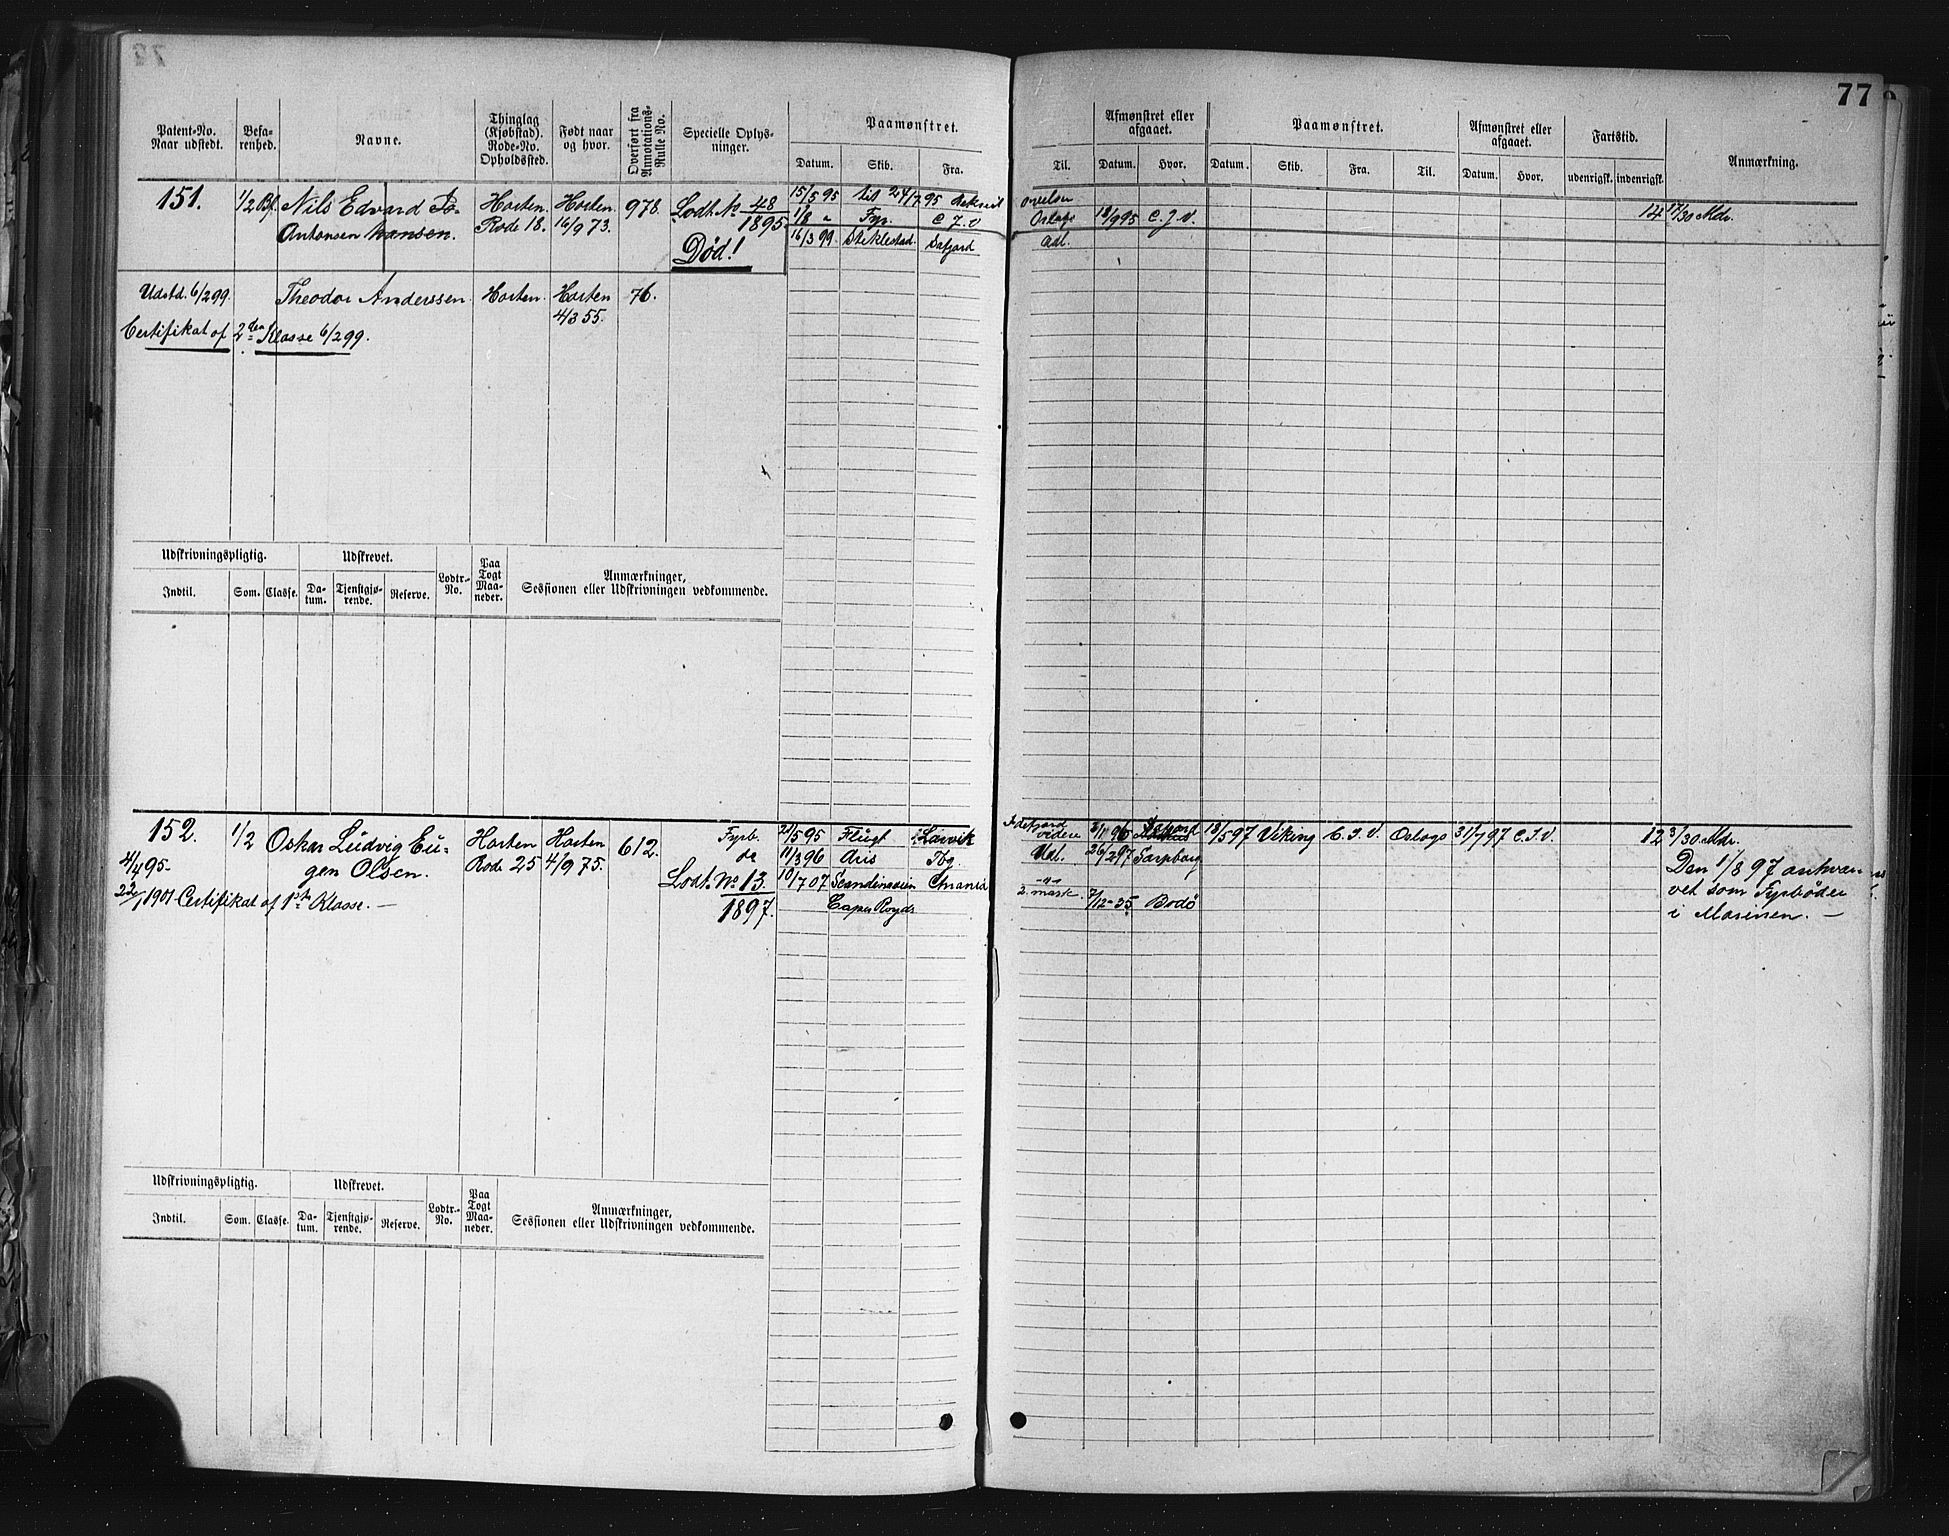 77
Patent-No. Naar udstedt.
Befa-renhed.
Navne.
Thinglag (Kjøbstad). Rode-No. Opholdssted.
Født naar og hvor.
Overført fra Annotations-Rulle No.
Specielle Oplys-ninger.
Paamønstret.
Datum. Skib. Fra. Til.
Afmønstret eller afgaaet.
Datum. Hvor.
Paamønstret.
Datum. Skib. Fra. Til.
Afmønstret eller afgaaet.
Datum. Hvor.
Fartstid.
udenrigsk. indenrigsk.
Anmærkning.
151. 1/2 Bf. Nils Edvard Horten Horten 978. Lodt. No 48 15/5 95 til 24/7 95
Antonsen Hansen. Rode 18. 16/9 73. 1895. 1/8 " Fyr. C.J.V Oslogs 18/9 95 C.J.V. 14 17/30 Mdr.
Død! 16/3 99 Stiklestad Udl.
Udstd. 6/2 99. Theodor Anderssen Horten. Horten 76.
4/3 55.
Certifikat af 2den Klasse 6/2 99.
Udskrivningspligtig. Udskrevet. Lodtr-No. Paa Togt Maa-neder. Anmærkninger, Sessionen eller Udskrivningen vedkommende.
Indtil. Som. Classe. Da-tum. Tjenstgjø-rende. Reserve.
152. 1/2 Oskar Ludvig Eu- Horten Horten 612. Fyrb. 21/5 95 Flugt Larvik videre 18/5 97 Viking C.J.V. Oslogs 31/7 97 C.J.V. 12 3/30 Mdr.
4/4 95. gen Olsen. Rode 25 4/9 75. do 11/3 96 Aris Tbg. Udl. 26/2 97 Sarpborg Den 1/8 97 antvæn
22/1 1901 Certifikat af 1ste Klasse. — Lodt. No 13. 10/7 07 Scandinavien Chrania 2. mask. 7/12-25 Bodø vet som Fyrbøder
1897. i Marinen. —
Udskrivningspligtig. Udskrevet. Lodtr-No. Paa Togt Maa-neder. Anmærkninger, Sessionen eller Udskrivningen vedkommende.
Indtil. Som. Classe. Da-tum. Tjenstgjø-rende. Reserve.